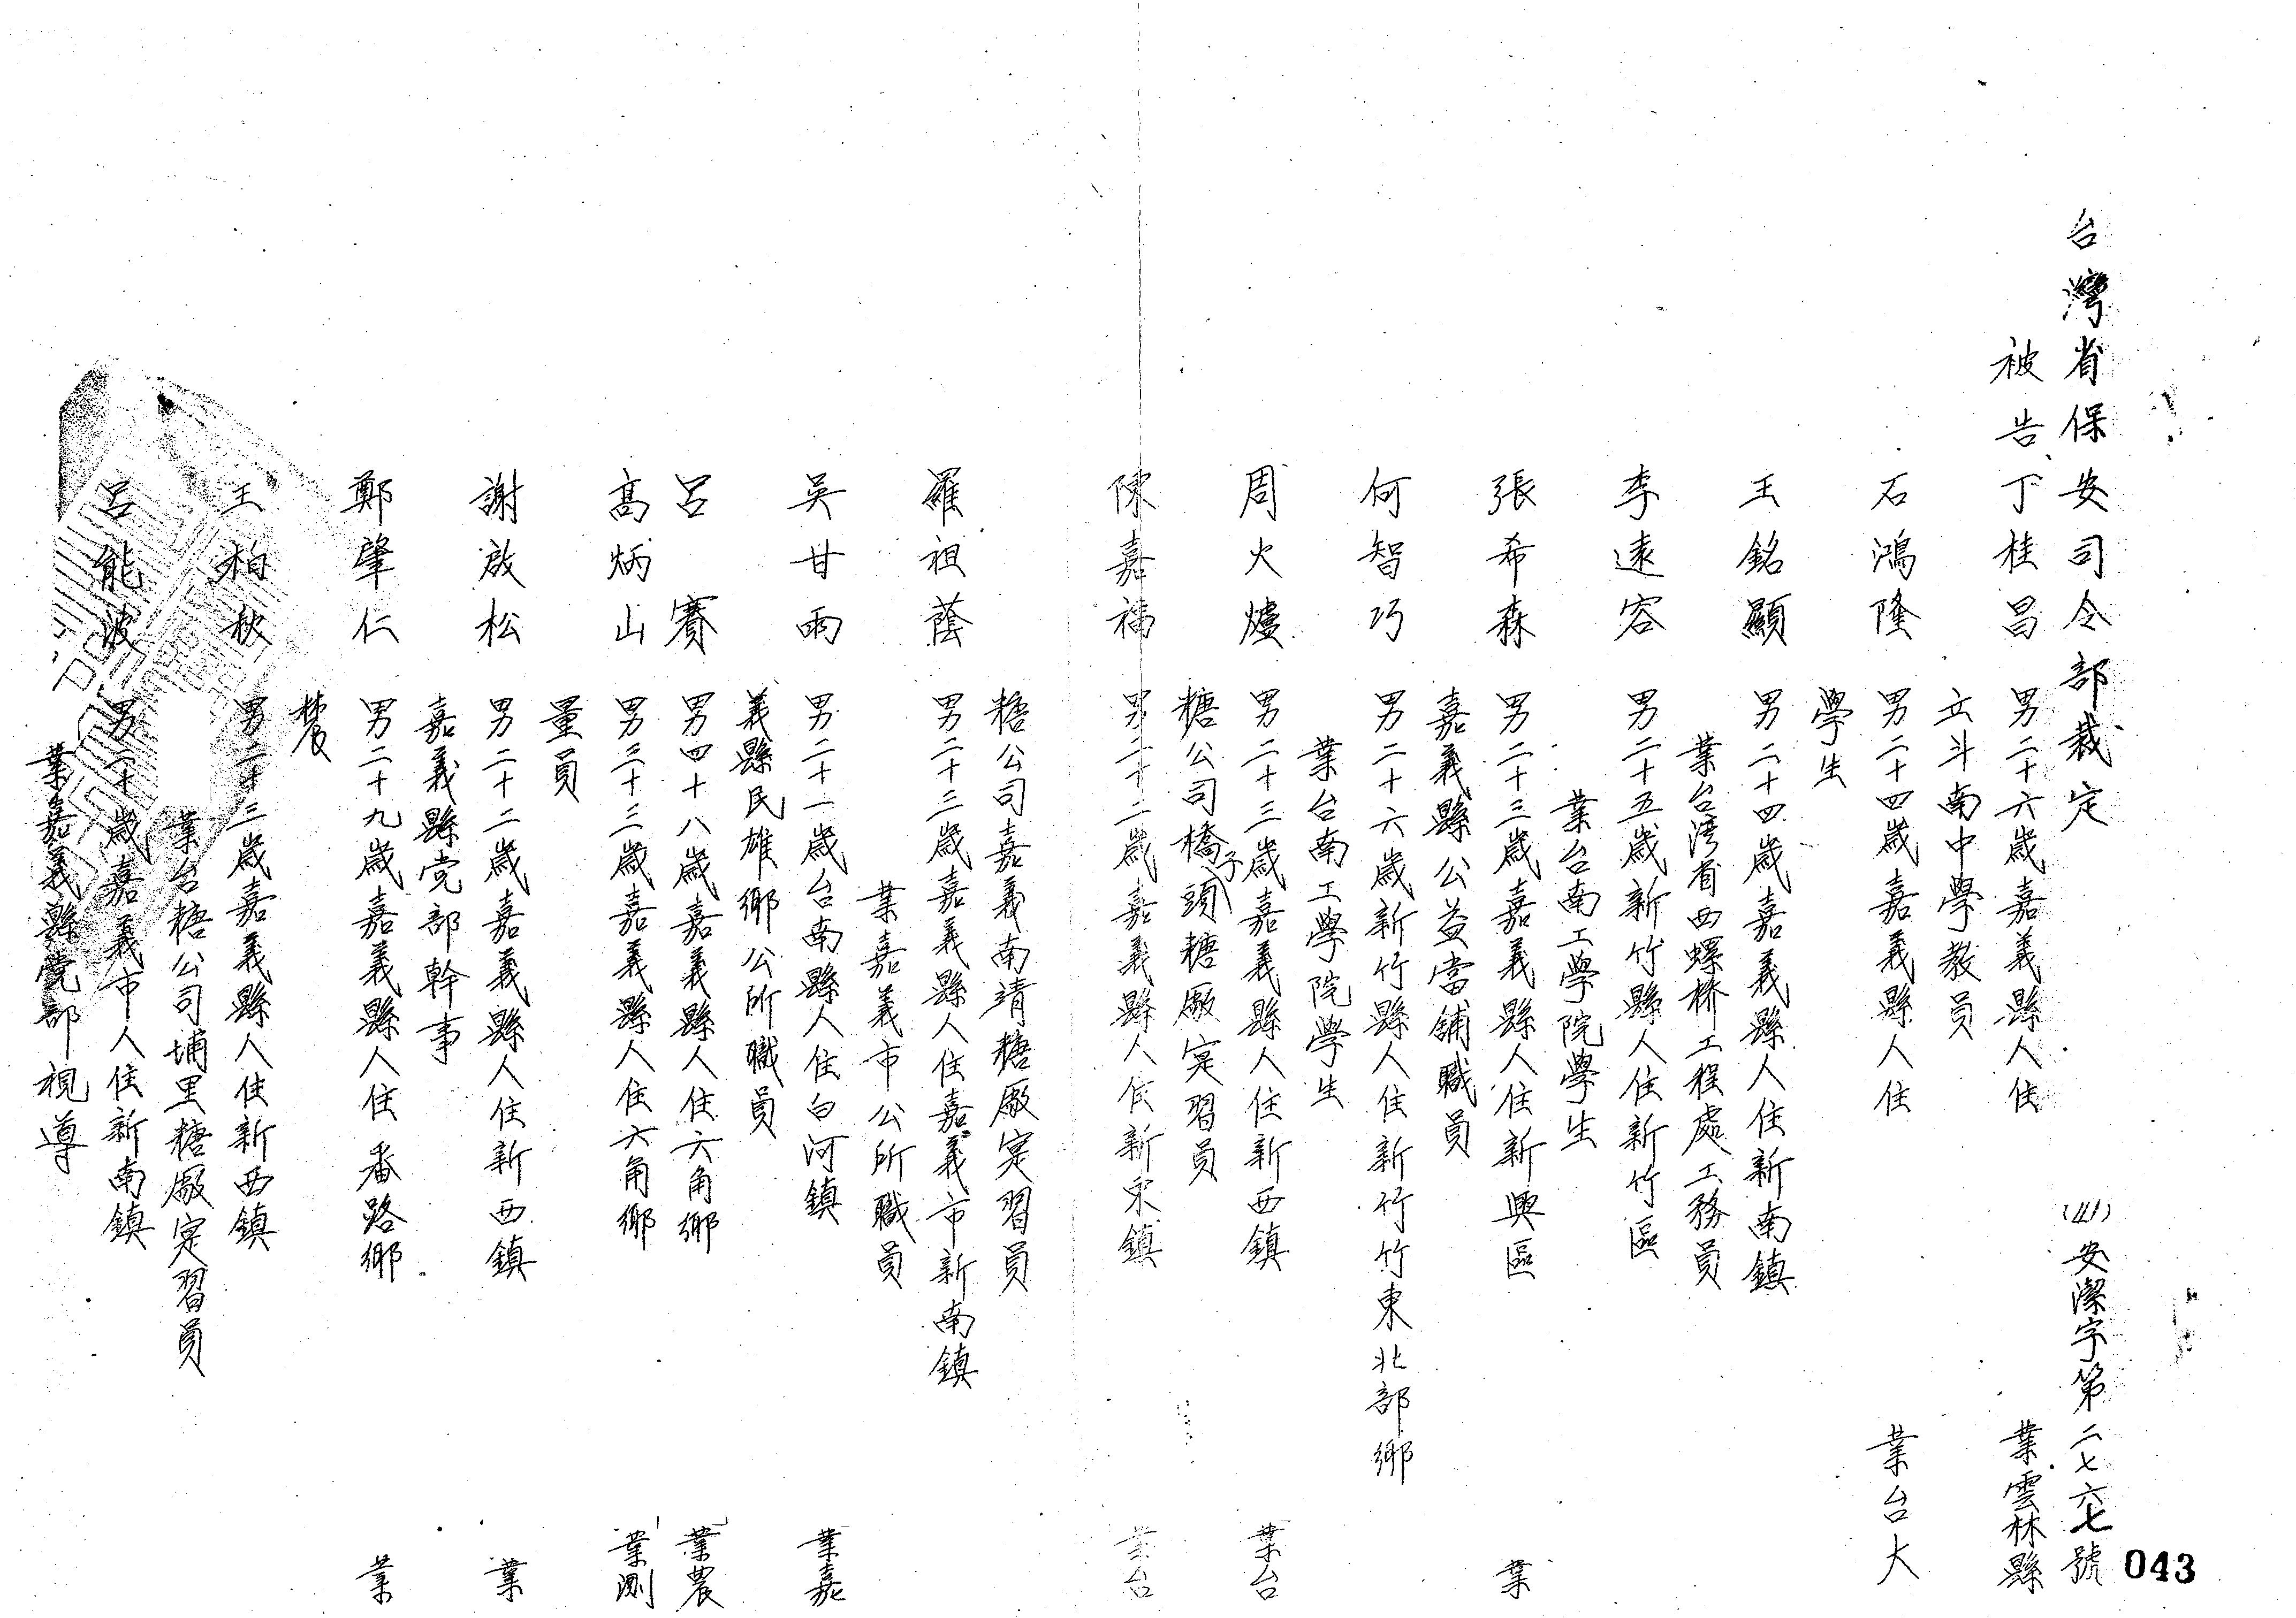 台灣省保安司令部裁定　(41)安潔字第二七六七號
被告　丁桂昌　男二十六歲嘉義縣人住　業雲林縣
立斗南中學教員
石鴻隆　男二十四歲嘉義縣人住　業台大
學生
王銘顯　男二十四歲嘉義縣人住新南鎮
業台湾省西螺桥工程處工務員
李遠容　男二十五歲新竹縣人住新竹區
業台南工學院學生
張希森　男二十三歲嘉義縣人住新興區　業
嘉義縣公益當舖職員
何智巧　男二十六歲新竹縣人住新竹竹東北部鄉
業台南工學院學生
周火爐　男二十三歲嘉義縣人住新西鎮　業台
糖公司橋子頭糖廠实習員
陳嘉福　男二十二歲嘉義縣人住新东鎮　業台
糖公司嘉義南靖糖廠实習員
羅祖蔭　男二十三歲嘉義縣人住嘉義市新南鎮
業嘉義市公所職員
吳甘雨　男二十一歲台南縣人住白河鎮　業嘉
義縣民雄鄉公所職員
呂賽　男四十八歲嘉義縣人住六角鄉　業農
高炳山　男三十三歲嘉義縣人住六角鄉　業測
量員
謝啟松　男二十二歲嘉義縣人住新西鎮　業
嘉義縣党部幹事
鄭肇仁　男二十九歲嘉義縣人住番路鄉　業
農
王柏秋　男二十三歲嘉義縣人住新西鎮
業台糖公司埔里糖廠实習員
呂能波　男二十歲嘉義市人住新南鎮
業嘉義縣党部視導
043